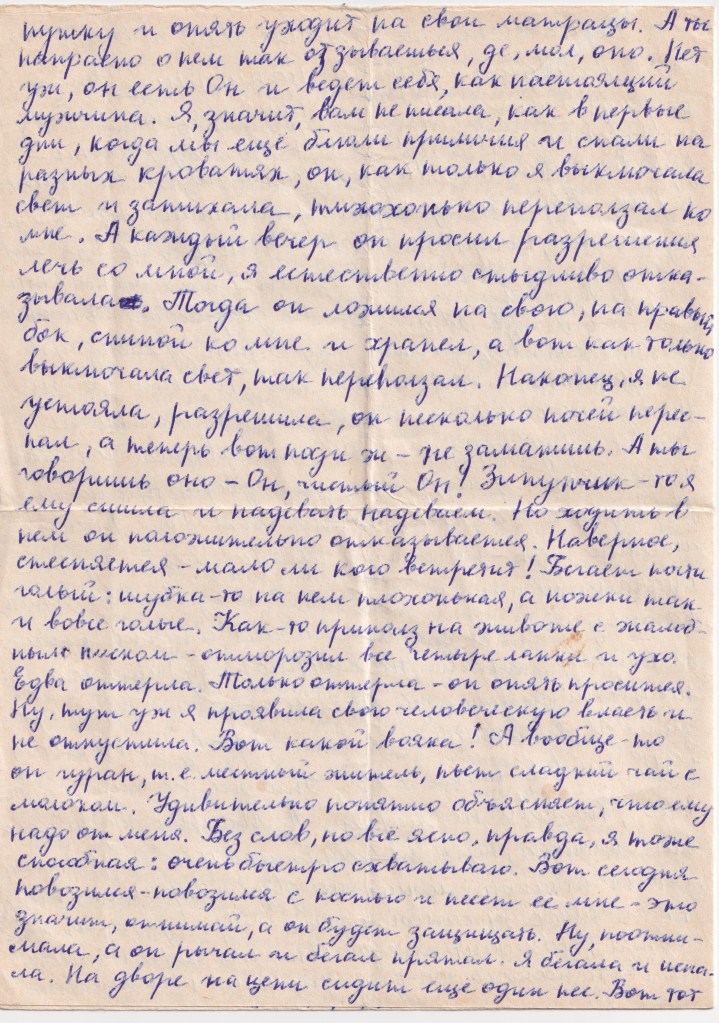 пушку и опять уходит на свои матрацы. А ты
напрасно о нем так отзываешься, де, мол, оно. Нет
уж, он есть Он и ведет себя, как настоящий
мужчина. Я, значит, вам не писала, как в первые
дни, когда мы ещё блюли приличия и спали на
разных кроватях, он, как только я выключала
свет и затихала, тихохонько переползал ко
мне. А каждый вечер он просил разрешения
лечь со мной, я естественно стыдливо отка-
зывала. Тогда он ложился на свою, на правый
бок, спиной ко мне и храпел, а вот как только
выключала свет, так переползал. Наконец, я не
устояла, разрешила, он несколько ночей перес-
пал, а теперь вот поди ж – не заманишь. А ты
говоришь оно – Он, чистый Он! Зипунчик-то я
ему сшила и надевать надеваем. Но ходить в
нем он положительно отказывается. Наверное,
стесняется – мало ли кого встретит! Бегает почти
голый: шубка-то на нем плохонькая, а ножки так
и вовсе голые. Как-то приполз на животе с жалоб-
ным писком – отморозил все четыре лапки и ухо.
Едва оттерла. Только оттерла – он опять просится.
Ну, тут уж я проявила свою человеческую власть и
не отпустила. Вот какой вояка! А вообще-то
он гуран, т.е. местный житель, пьет сладкий чай с
молоком. Удивительно понятно объясняет, что ему
надо от меня. Без слов, но всё ясно, правда, я тоже
способная: очень быстро схватываю. Вот сегодня
повозился-повозился с костью и несет ее мне – это
значит, отнимай, а он будет защищать. Ну, поотни-
мала, а он рычал и бегал прятал. Я бегала и иска-
ла. На дворе на цепи сидит еще один пес. Вот тот